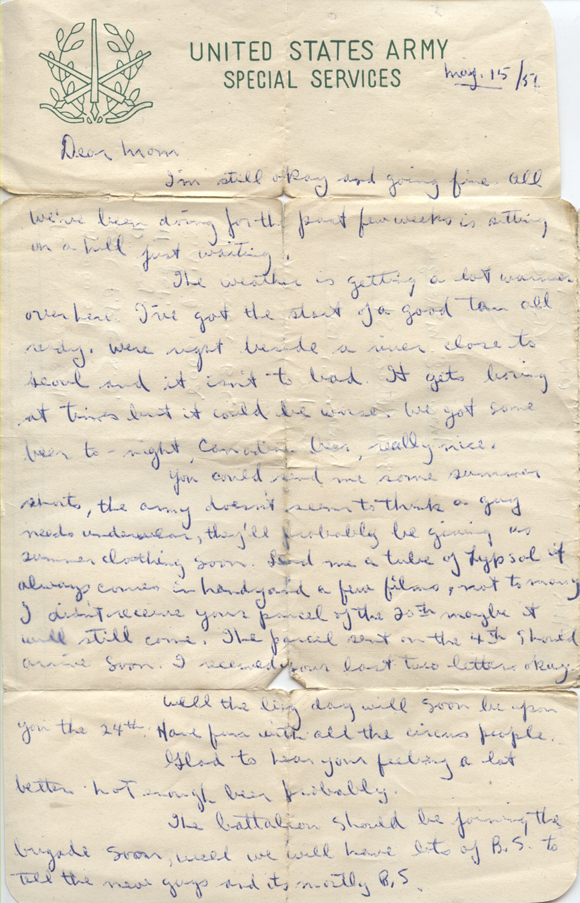 UNITED STATES ARMY
SPECIAL SERVICES
May. 15/51
Dear Mom
I'm still okay and going fine. All
we've been doing for the past few weeks is sitting
on a hill just waiting.
The weather is getting a lot warmer
over here. I've got the start of a good tan all
ready. Were right beside a river close to
Seoul and it isn't to bad. It gets boring
at times but it could be worse. We got some
beer to-night, Canadian beer, really nice.
You could send me some summer
shorts, the army doesn't seem to think a guy
needs underwear, they'll probably be giving us
summer clothing soon. Send me a tube of Lypsol it
always comes in handy and a few films, not to many
I didn't receive your parcel of the 20th maybe it
will still come. The parcel sent on the 4th should
arrive soon. I received your last two letters okay.
Well the big day will soon be upon
you the 24th. Have fun with all the circus people.
Glad to hear your feeling a lot
better not enough beer probably.
The battalion should be joining the
brigade soon, well we will have lots of B.S. to
tell the new guys and its mostly B.S.